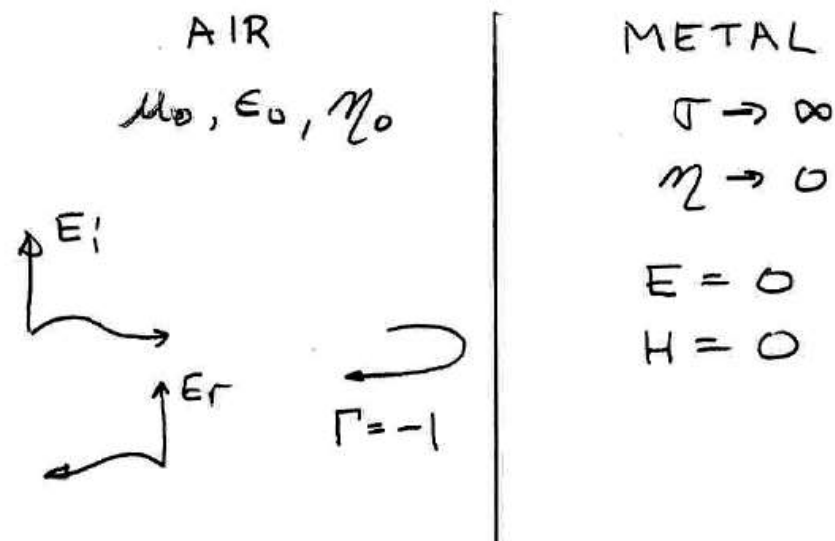 AIR
μ₀, ε₀, η₀
Ei
Er
Γ = -1
METAL
σ → ∞
η → 0
E = 0
H = 0